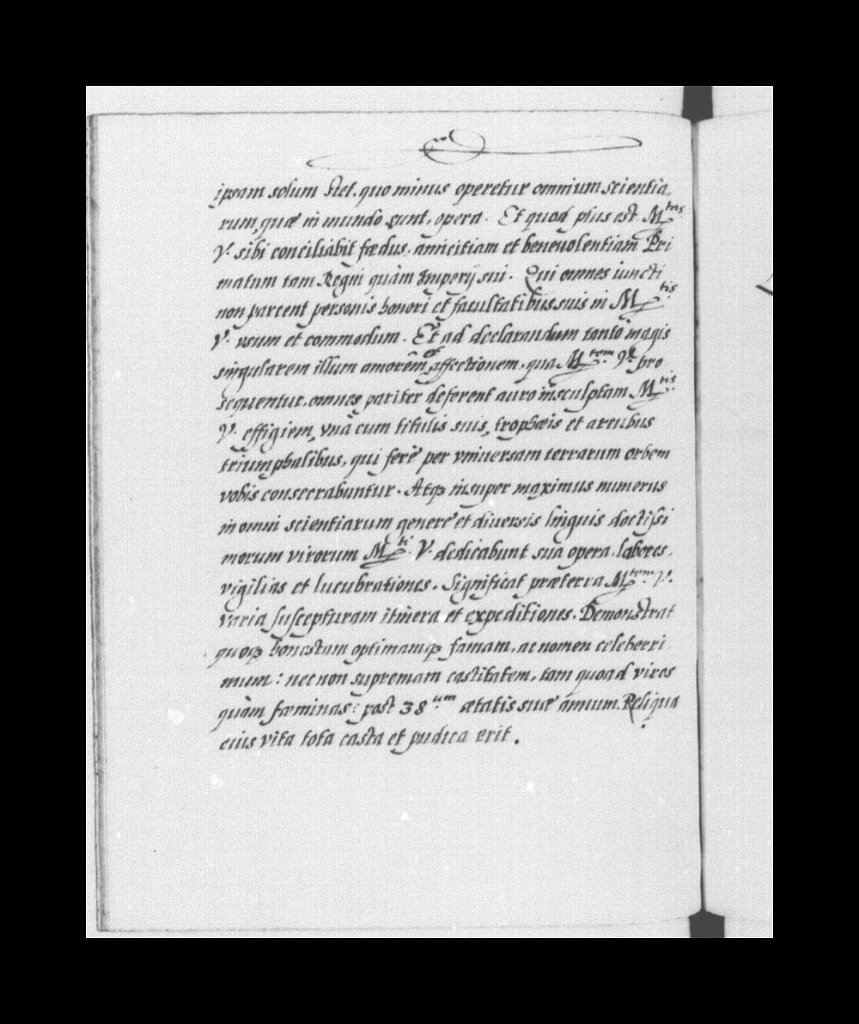 ipsam solum stet, quo minus operetur omnium scientia,
rum, quæ in mundo sunt, opera. Et quod plus est M.tris
V. sibi conciliabit fœdus, amicitiam et beneuolentiam Pri
matum tam Regni quàm Imperij sui. Qui omnes iuncti
non parcent personis honori et facultatibus suis in M.tis
V. vsum et commodum. Et ad declarandum tantò magis
singularem illum amorem et affectionem, qua M.tem V. pro
sequentur, omnes pariter deferent auro insculptam M.tis
V. effigiem, vna cum titulis suis, trophæis et arcubus
triumphalibus, qui ferè per vniuersam terrarum orbem
vobis consecrabuntur. Atqꝫ insuper maximus numerus
in omni scientiarum genere et diuersis linguis doctissi
morum virorum M.ti V. dedicabunt sua opera, labores,
vigilias et lucubrationes. Significat præterea M.tem V.
varia suscepturam itinera et expeditiones. Demonstrat
quoqꝫ honestam optimamqꝫ famam, ac nomen celeberri
mum: nec non supremam castitatem, tam quoad vires
quàm fœminas: post 38.um ætatis suæ annum. Reliqua
eius vita tota casta et pudica erit.